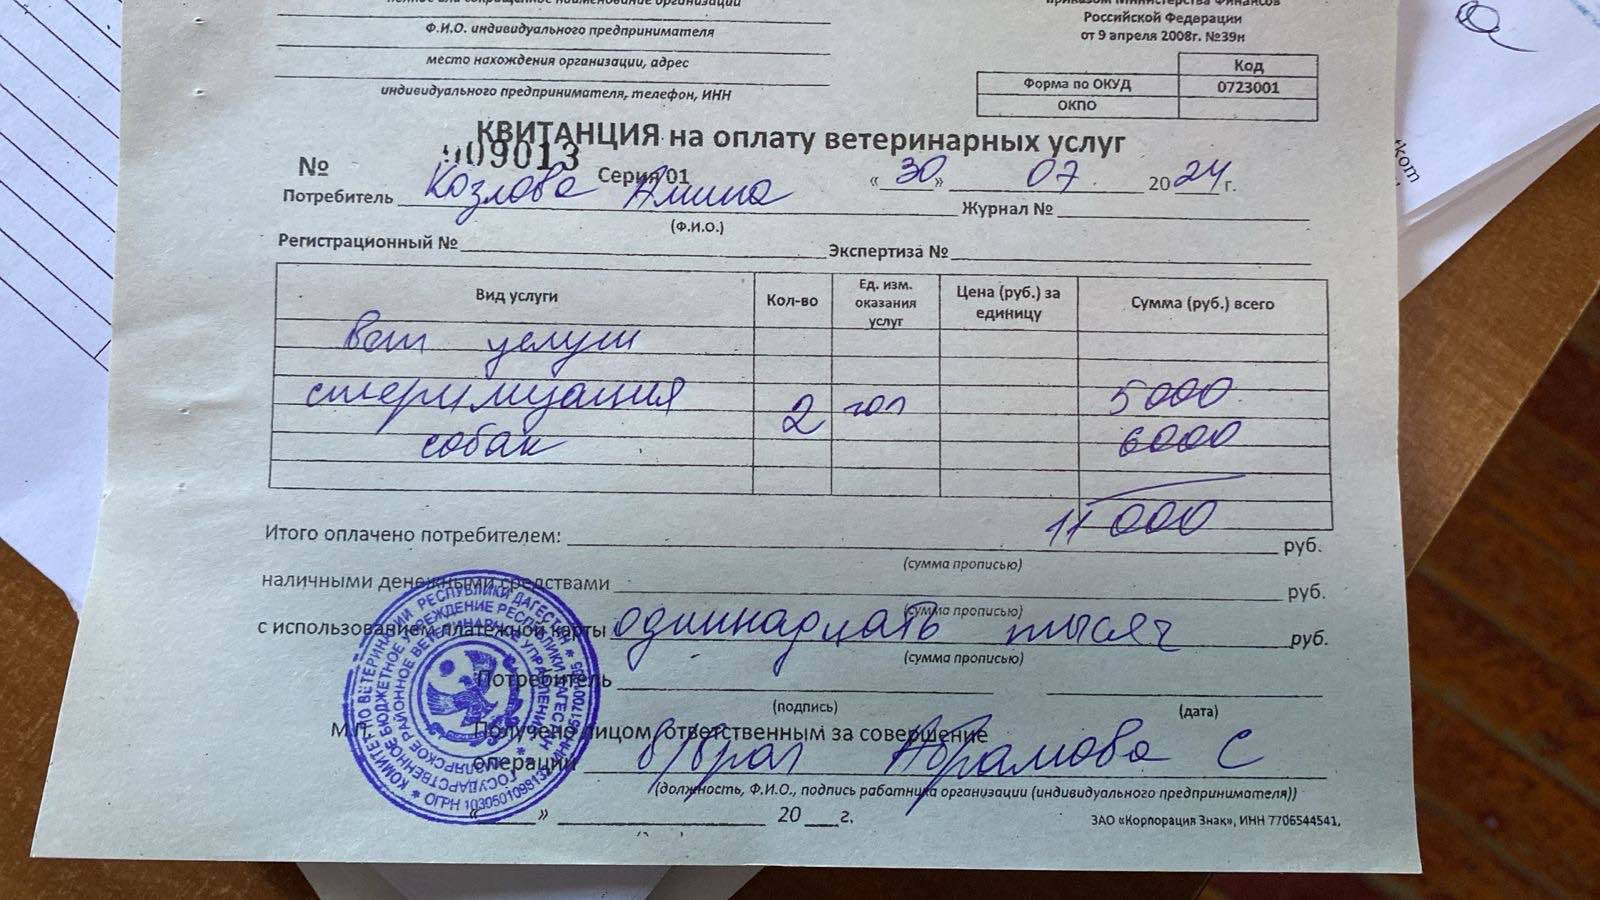 полное или сокращенное наименование организации
Ф.И.О. индивидуального предпринимателя
место нахождения организации, адрес
индивидуального предпринимателя, телефон, ИНН
приказом Министерства Финансов
Российской Федерации
от 9 апреля 2008г. №39н
Код
Форма по ОКУД 0723001
ОКПО
КВИТАНЦИЯ на оплату ветеринарных услуг
№ 909013 Серия 01 «30» 07. 2024 г.
Потребитель Козлова Амина Журнал №
(Ф.И.О.)
Регистрационный № Экспертиза №
Вид услуги Кол-во Ед. изм. оказания услуг Цена (руб.) за единицу Сумма (руб.) всего
Вет услуги
стерилизация 2 гол 5000
собак 6000
11000
Итого оплачено потребителем: руб.
(сумма прописью)
наличными денежными средствами руб.
(сумма прописью)
с использованием платежной карты одиннадцать тысяч руб.
(сумма прописью)
Потребитель
(подпись) (дата)
М.П. Получено лицом, ответственным за совершение
операции в/врач Абрамова С
(должность, Ф.И.О., подпись работника организации (индивидуального предпринимателя))
« » 20 г.
ЗАО «Корпорация Знак», ИНН 7706544541,
КОМИТЕТ ПО ВЕТЕРИНАРИИ РЕСПУБЛИКИ ДАГЕСТАН
ГОСУДАРСТВЕННОЕ БЮДЖЕТНОЕ УЧРЕЖДЕНИЕ РЕСПУБЛИКИ ДАГЕСТАН
РАЙОННОЕ ВЕТЕРИНАРНОЕ УПРАВЛЕНИЕ
ОГРН